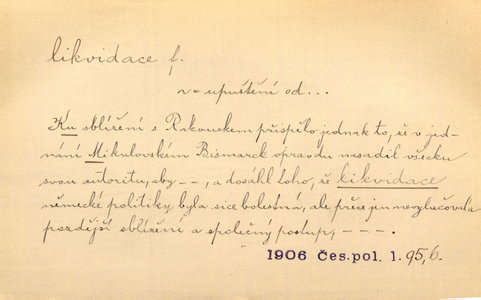 likvidace f.
v = upuštění od...
Ku sblížení s Rakouskem přispělo jednak to, že v jed-
nání Mikulovském Bismarck opravdu nasadil všecku
svou autoritu, aby – –, a dosáhl toho, že likvidace
německé politiky byla sice bolestná, ale přece jen nevylučovala
pozdější sblížení a společný postup, – – –.
1906 Čes.pol. 1. 95,6.